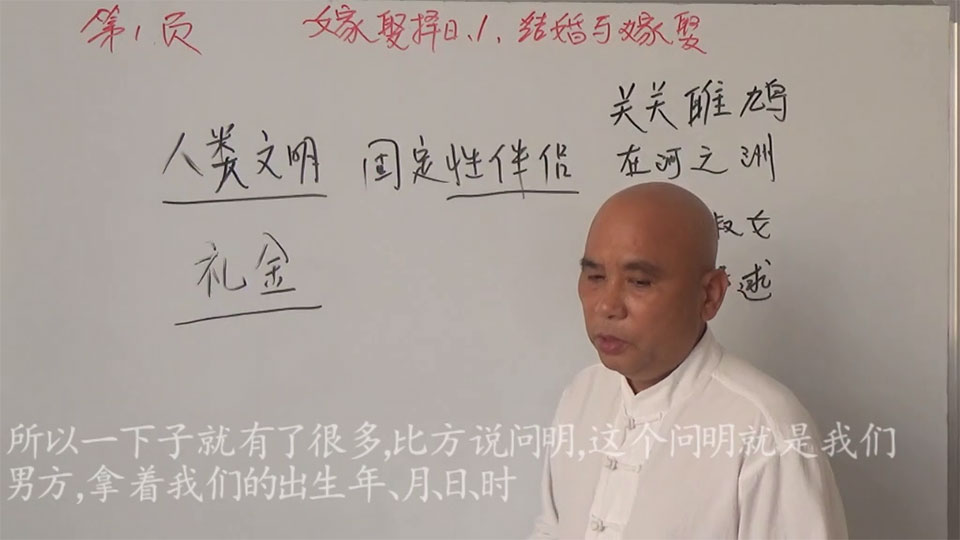 第1页 嫁娶择日、1、结婚与嫁娶
人类文明 固定性伴侣
关关雎鸠
在河之洲
淑女
逑
礼金
所以一下子就有了很多,比方说问明,这个问明就是我们
男方,拿着我们的出生年、月、日、时